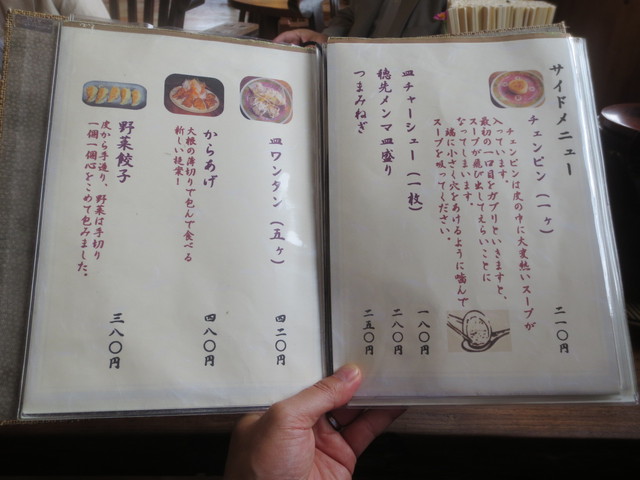 サイドメニュー
チェンピン（一ヶ）
二一〇円
チェンピンは皮の中に大変熱いスープが
入っています。
最初の一口目をガブリといきますと、
スープが飛び出してえらいことに
なってしまいます。
端に小さく穴をあけるように噛んで
スープを吸ってください。
皿チャーシュー（一枚）
一八〇円
穂先メンマ皿盛り
二八〇円
つまみねぎ
二五〇円
皿ワンタン（五ヶ）
四二〇円
からあげ
大根の薄切りで包んで食べる
新しい提案！
四八〇円
野菜餃子
皮から手造り、野菜は手切り
一個一個心をこめて包みました。
三八〇円